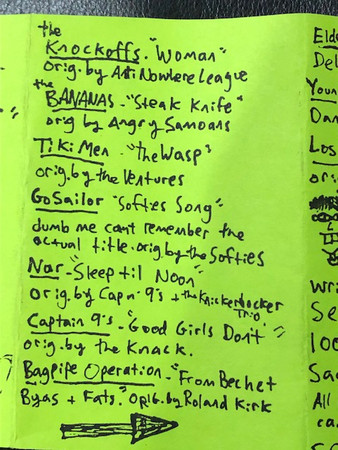 the
Knockoffs. "Woman"
orig. by Anti Nowhere League
the
BANANAS - "Steak Knife"
orig by Angry Samoans
Tiki Men - "The Wasp"
orig. by the Ventures
Go Sailor "Softies Song"
dumb me cant remember the
actual title. orig. by the Softies
Nar - "Sleep til Noon"
orig. by Capn 9's + the Knickerbocker
Trio
Captain 9's - "Good Girls Don't"
orig. by the Knack.
Bagpipe Operation - "From Bechet
Byas + Fats." orig. by Roland Kirk
Elde
Del
Youn
Dan
Los
ori
wri
Se
100
Sa
All
ca